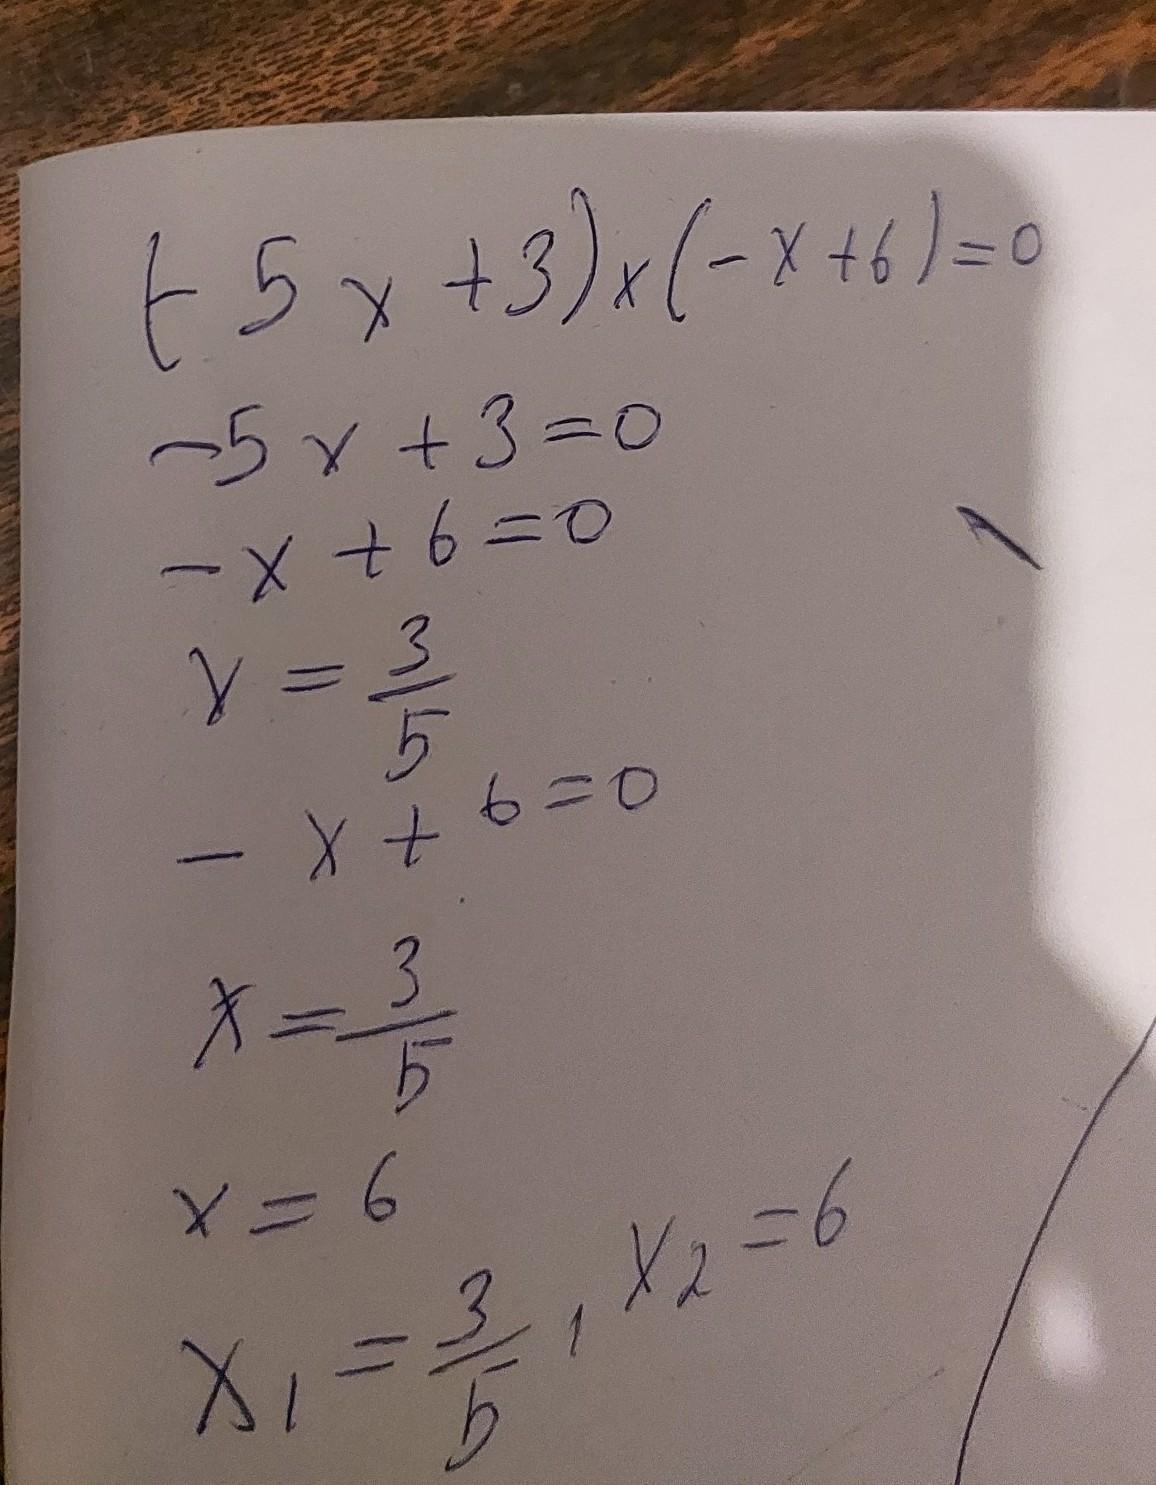 (-5x+3)x(-x+6)=0
-5x+3=0
-x+6=0
x=3/5
-x+6=0
x=3/5
x=6
x₁=3/5, x₂=6